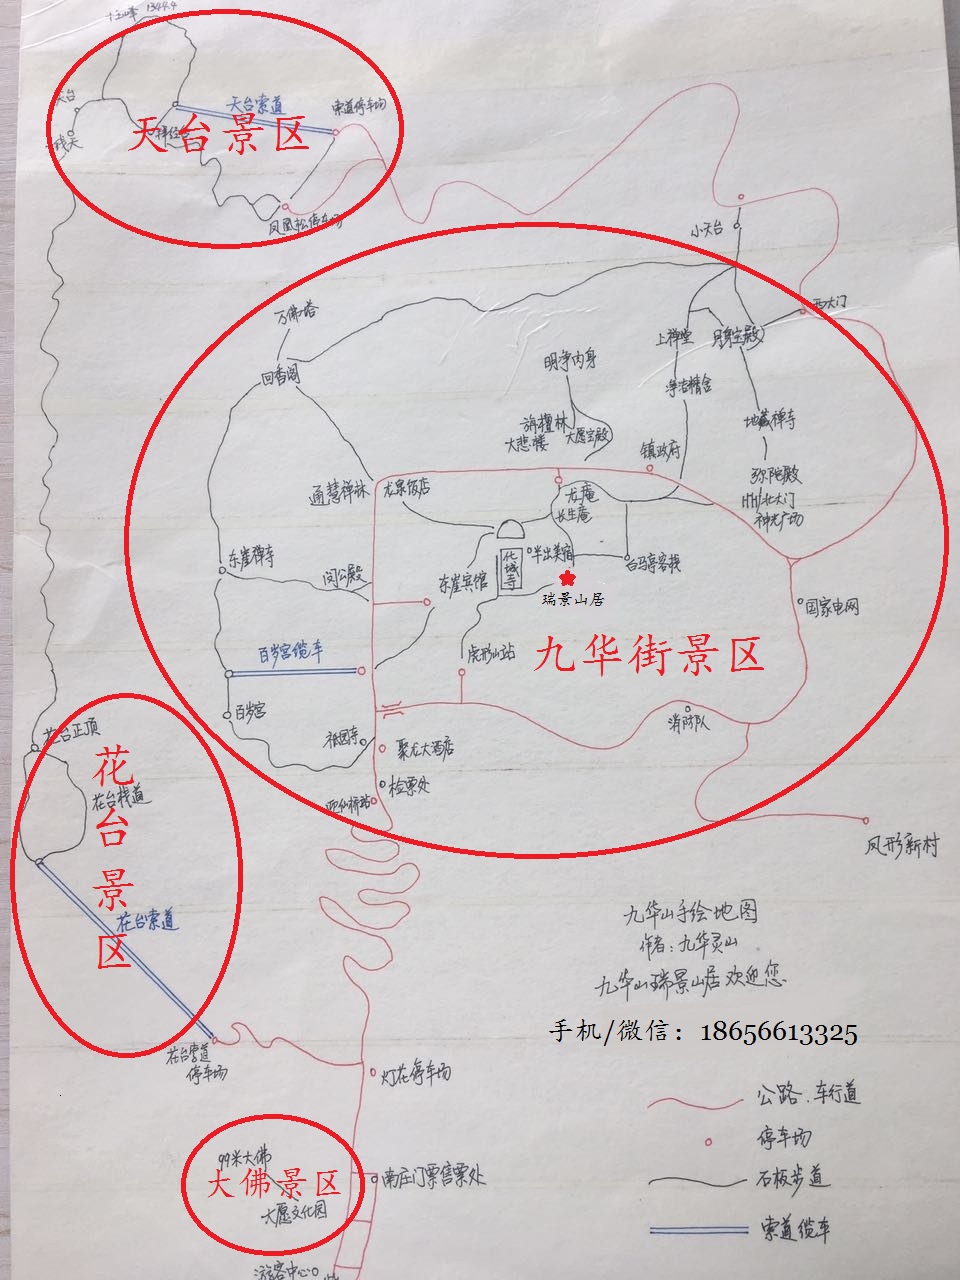 十王峰 1344.4
天台
天台索道
索道停车场
天台景区
凤凰松停车场
小天台
西大门
万佛塔
回香阁
上禅堂
月身宝殿
明净肉身
净洁精舍
旃檀林
大悲楼
大愿宝殿
地藏禅寺
镇政府
通慧禅林
龙泉饭店
龙庵
长生庵
弥陀殿
HH/北大门
神光广场
东崖禅寺
闵公殿
东崖宾馆
化城寺
半山美宿
白马亭客栈
瑞景山居
国家电网
百岁宫缆车
虎形山站
九华街景区
百岁宫
祇园寺
聚龙大酒店
消防队
检票处
迎仙桥站
凤形新村
花台正顶
花台栈道
花台景区
花台索道
九华山手绘地图
作者:九华灵山
九华山瑞景山居欢迎您
手机/微信：18656613325
花台索道
停车场
灯花停车场
公路.车行道
停车场
石板步道
索道缆车
99米大佛
大佛景区
大愿文化园
南庄门票售票处
游客中心